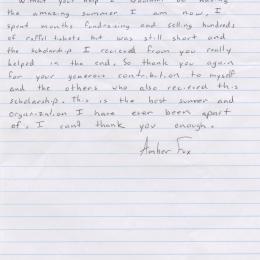 Without your help I wouldn't be having
the amazing summer I am now. I
spend months fundraising and selling hundreds
of raffel tickets but was still short and
the scholarship I recieved from you really
helped in the end. So thank you again
for your generous contribution to myself
and the others who also recieved this
scholarship. This is the best summer and
organization I have ever been apart
of. I can't thank you enough.
Amber Fox